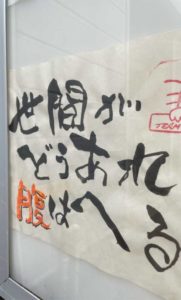 世間が
どうあれ
腹はへる